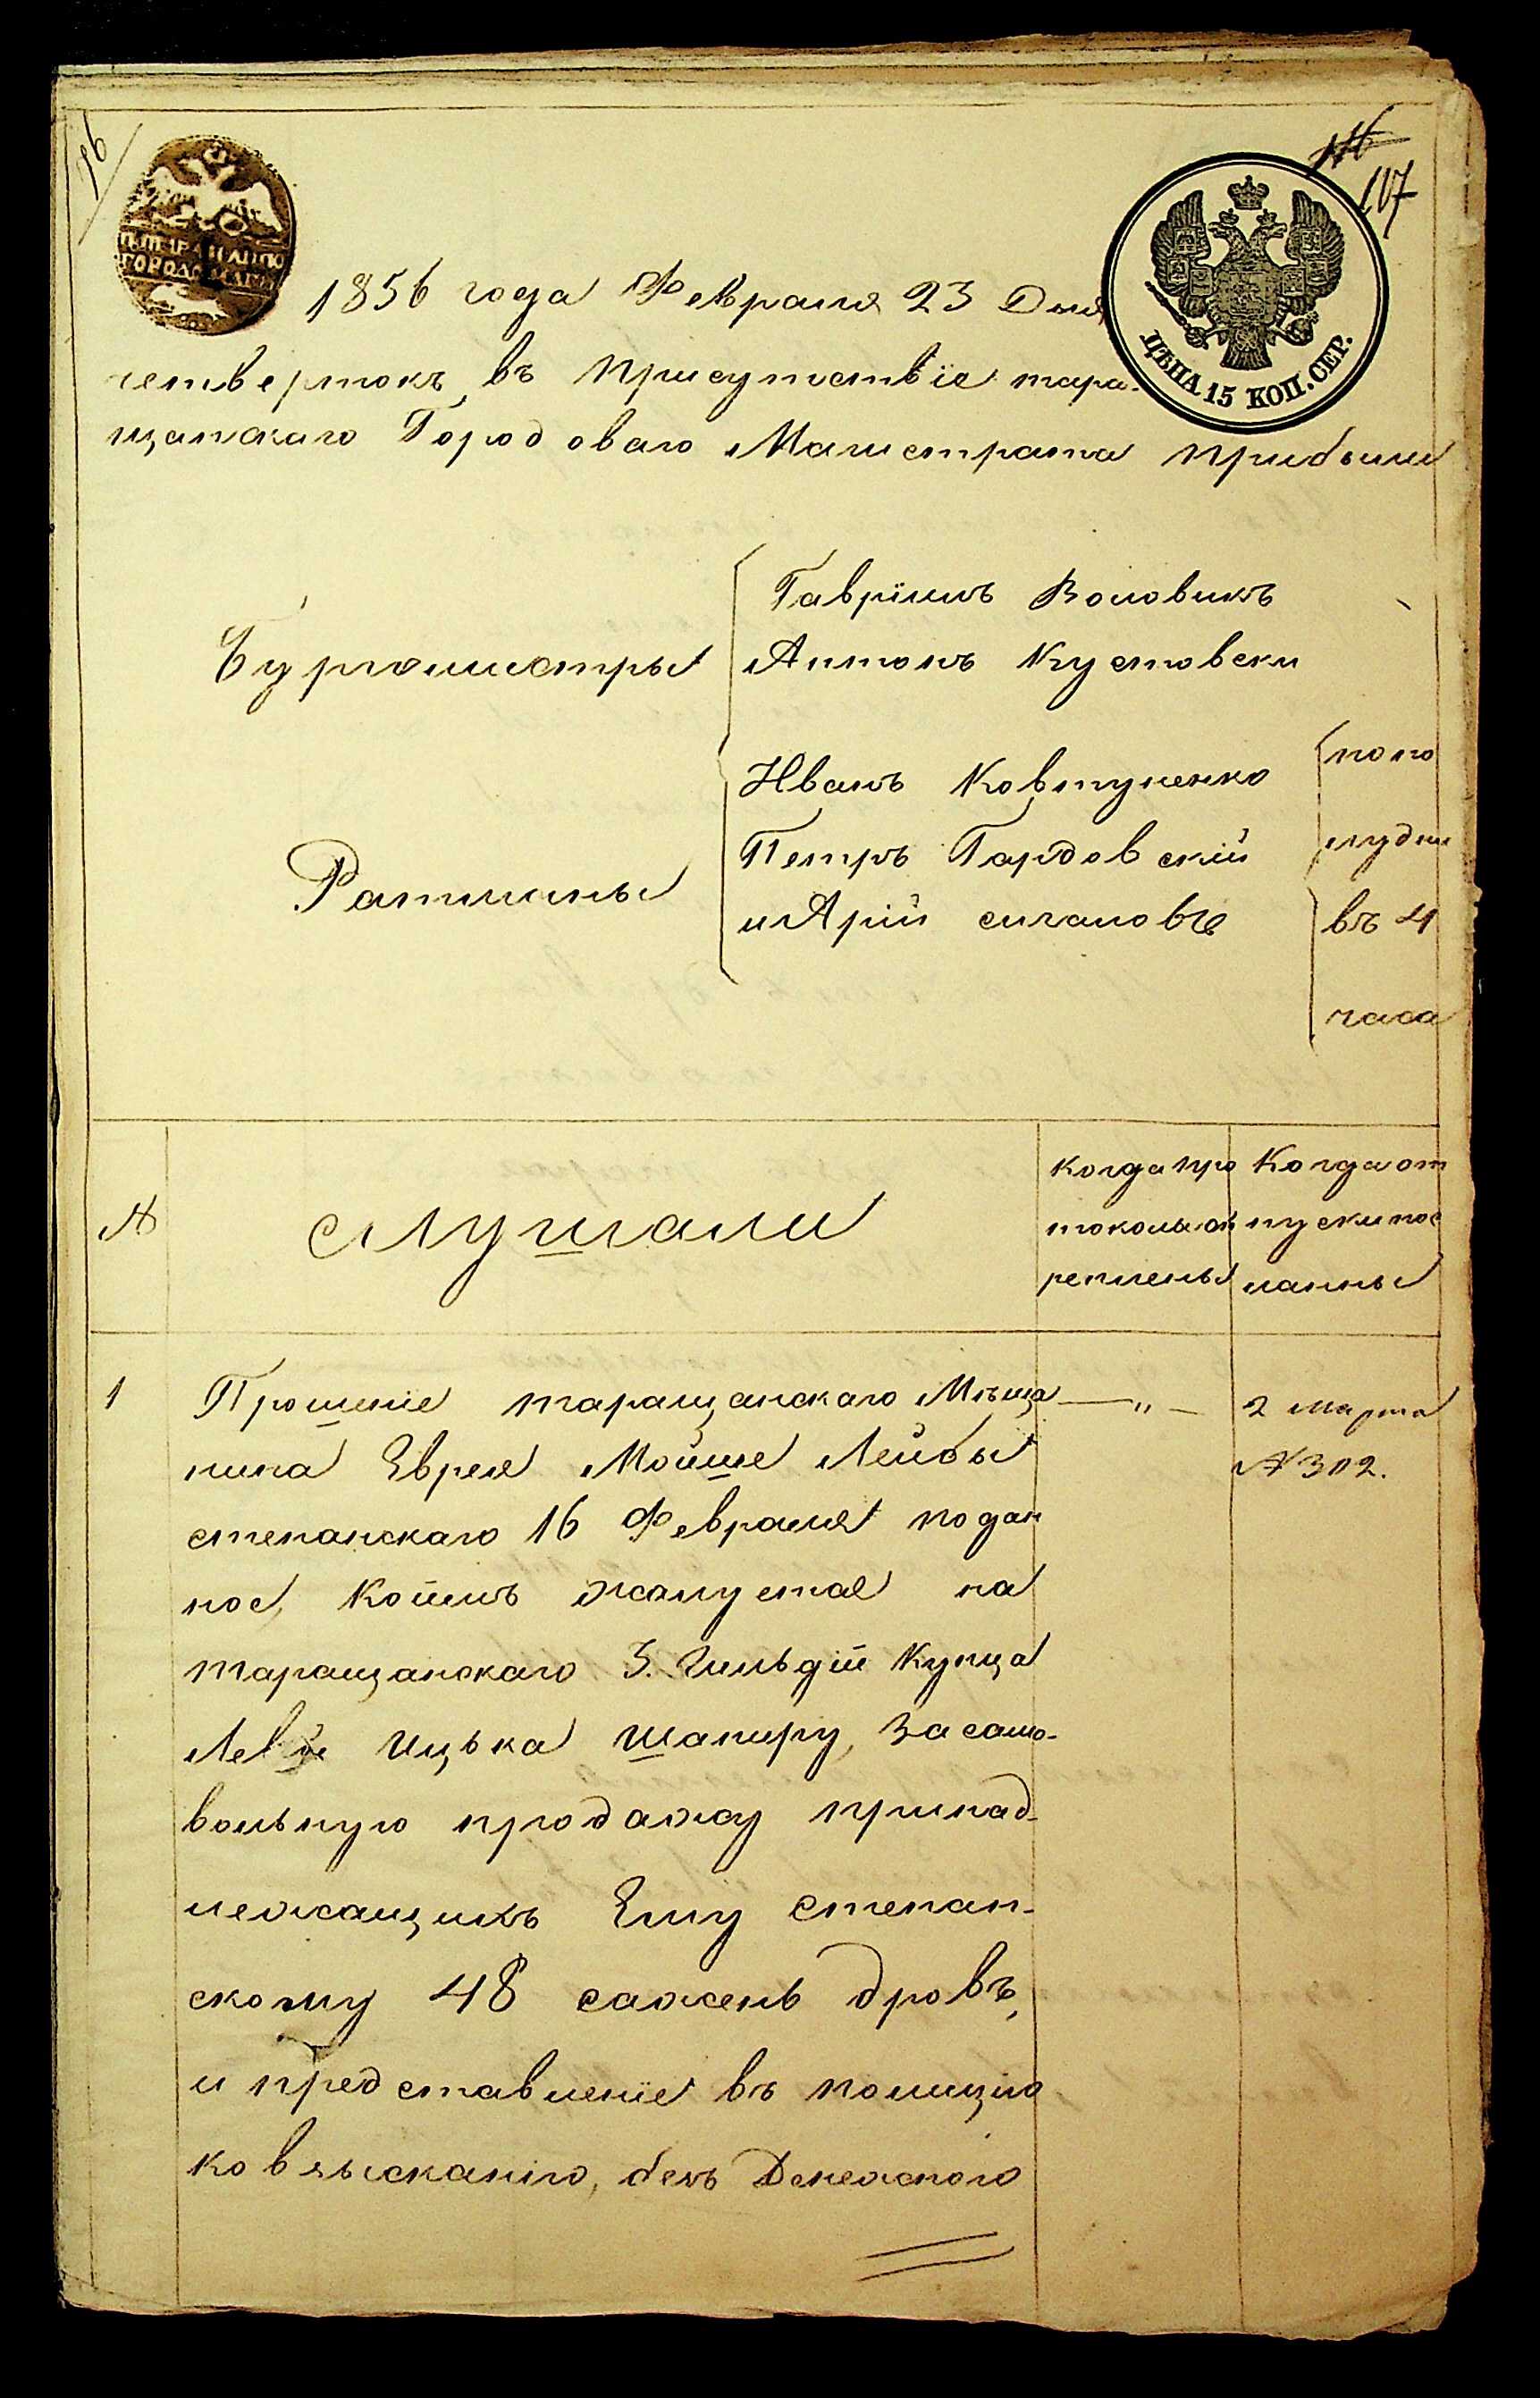 116
107
76
ЦѢНА 15 КОП. СЕР.
1856 года Февраля 23 Дня
четвертокъ, въ присутствіе тара-
щанскаго Городоваго Магистрата прибыли
Бургомистры
Гавріилъ Воловикъ
Антонъ Кустовски
Ратманы
Иванъ Ковтуненко
Петръ Гардовскій
и Арій сигаловъ
попо
лудни
въ 4
часа
№
слушали
когда про
токолы ск
реплены
Когда от
пуски пос
ланны
1
Прошеніе таращанскаго Мѣща
нина Еврея Мойше Лейбы
степанскаго 16 Февраля подан
ное, коимъ жалуется на
таращанскаго 3. Гильдіи Купца
Левы Ицька Шапиру, за само-
вольную продажу принад-
лежащихъ Ему степан-
скому 48 сажень дровъ,
и представленіе въ полицію
ко взысканію, безъ Денежного
— „ —
2 марта
№ 302.